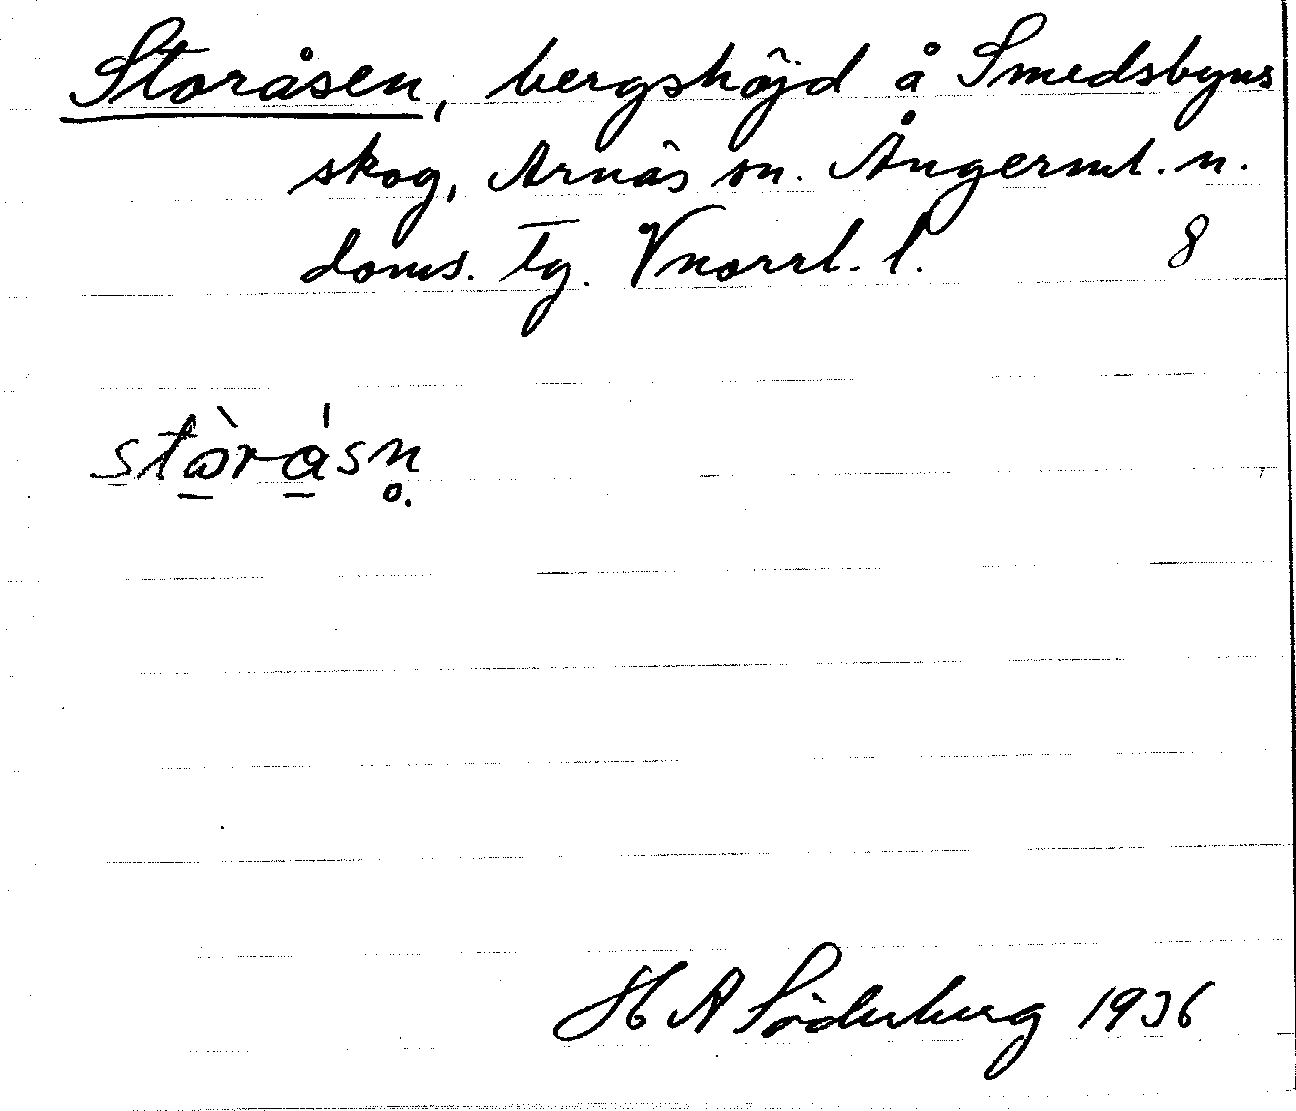 Storåsen, bergshöjd å Smedsbyns
skog, Arnäs sn. Ångerml. n.
doms. tg. Vnorrl. l. 8
stò̠rá̠sn̥.
H A Söderberg 1936